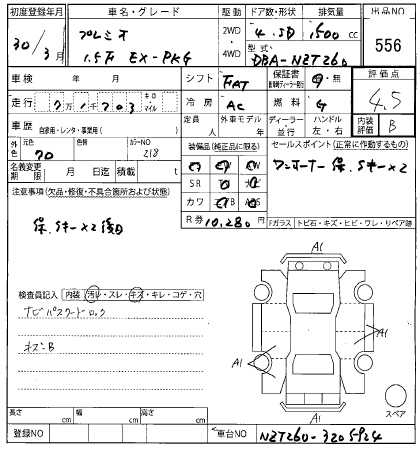 初度登録年月 車名・グレード 駆動 ドア数・形状 排気量 出品NO
30/3月 プレミオ 2WD 4.SD 1500cc 556
1.5万 EX-PKG 4WD 型式 DBA-NZT260
車検 年 月 シフト FAT 保証書 有・無 評価点
走行 キロ・マイル 冷房 AC 燃料 G 4.5
車歴 自家用・レンタ・事業用( ) 定員 人 外車モデル 年 ディーラー・並行 ハンドル 左・右 内装評価 B
外色 元色 70 色替 カラーNO 218 装備品(純正品に限る) セールスポイント(正常に動作する事)
名義変更期限 月 日迄 積載 t ワンオーナー 保.Sキー×2
注意事項(欠品・修復・不具合箇所および状態) SR
保.Sキー×2後日 カワ
R券 10,280円 Fガラス トビ石・キズ・ヒビ・ワレ・リペア跡
検査員記入 内装 汚レ・スレ・キズ・キレ・コゲ・穴
A1
ナビパスワードロック
キズB
A1
A1
A1
スペア
長さ cm 幅 cm 高さ cm
登録NO 車台NO NZT260-3205924